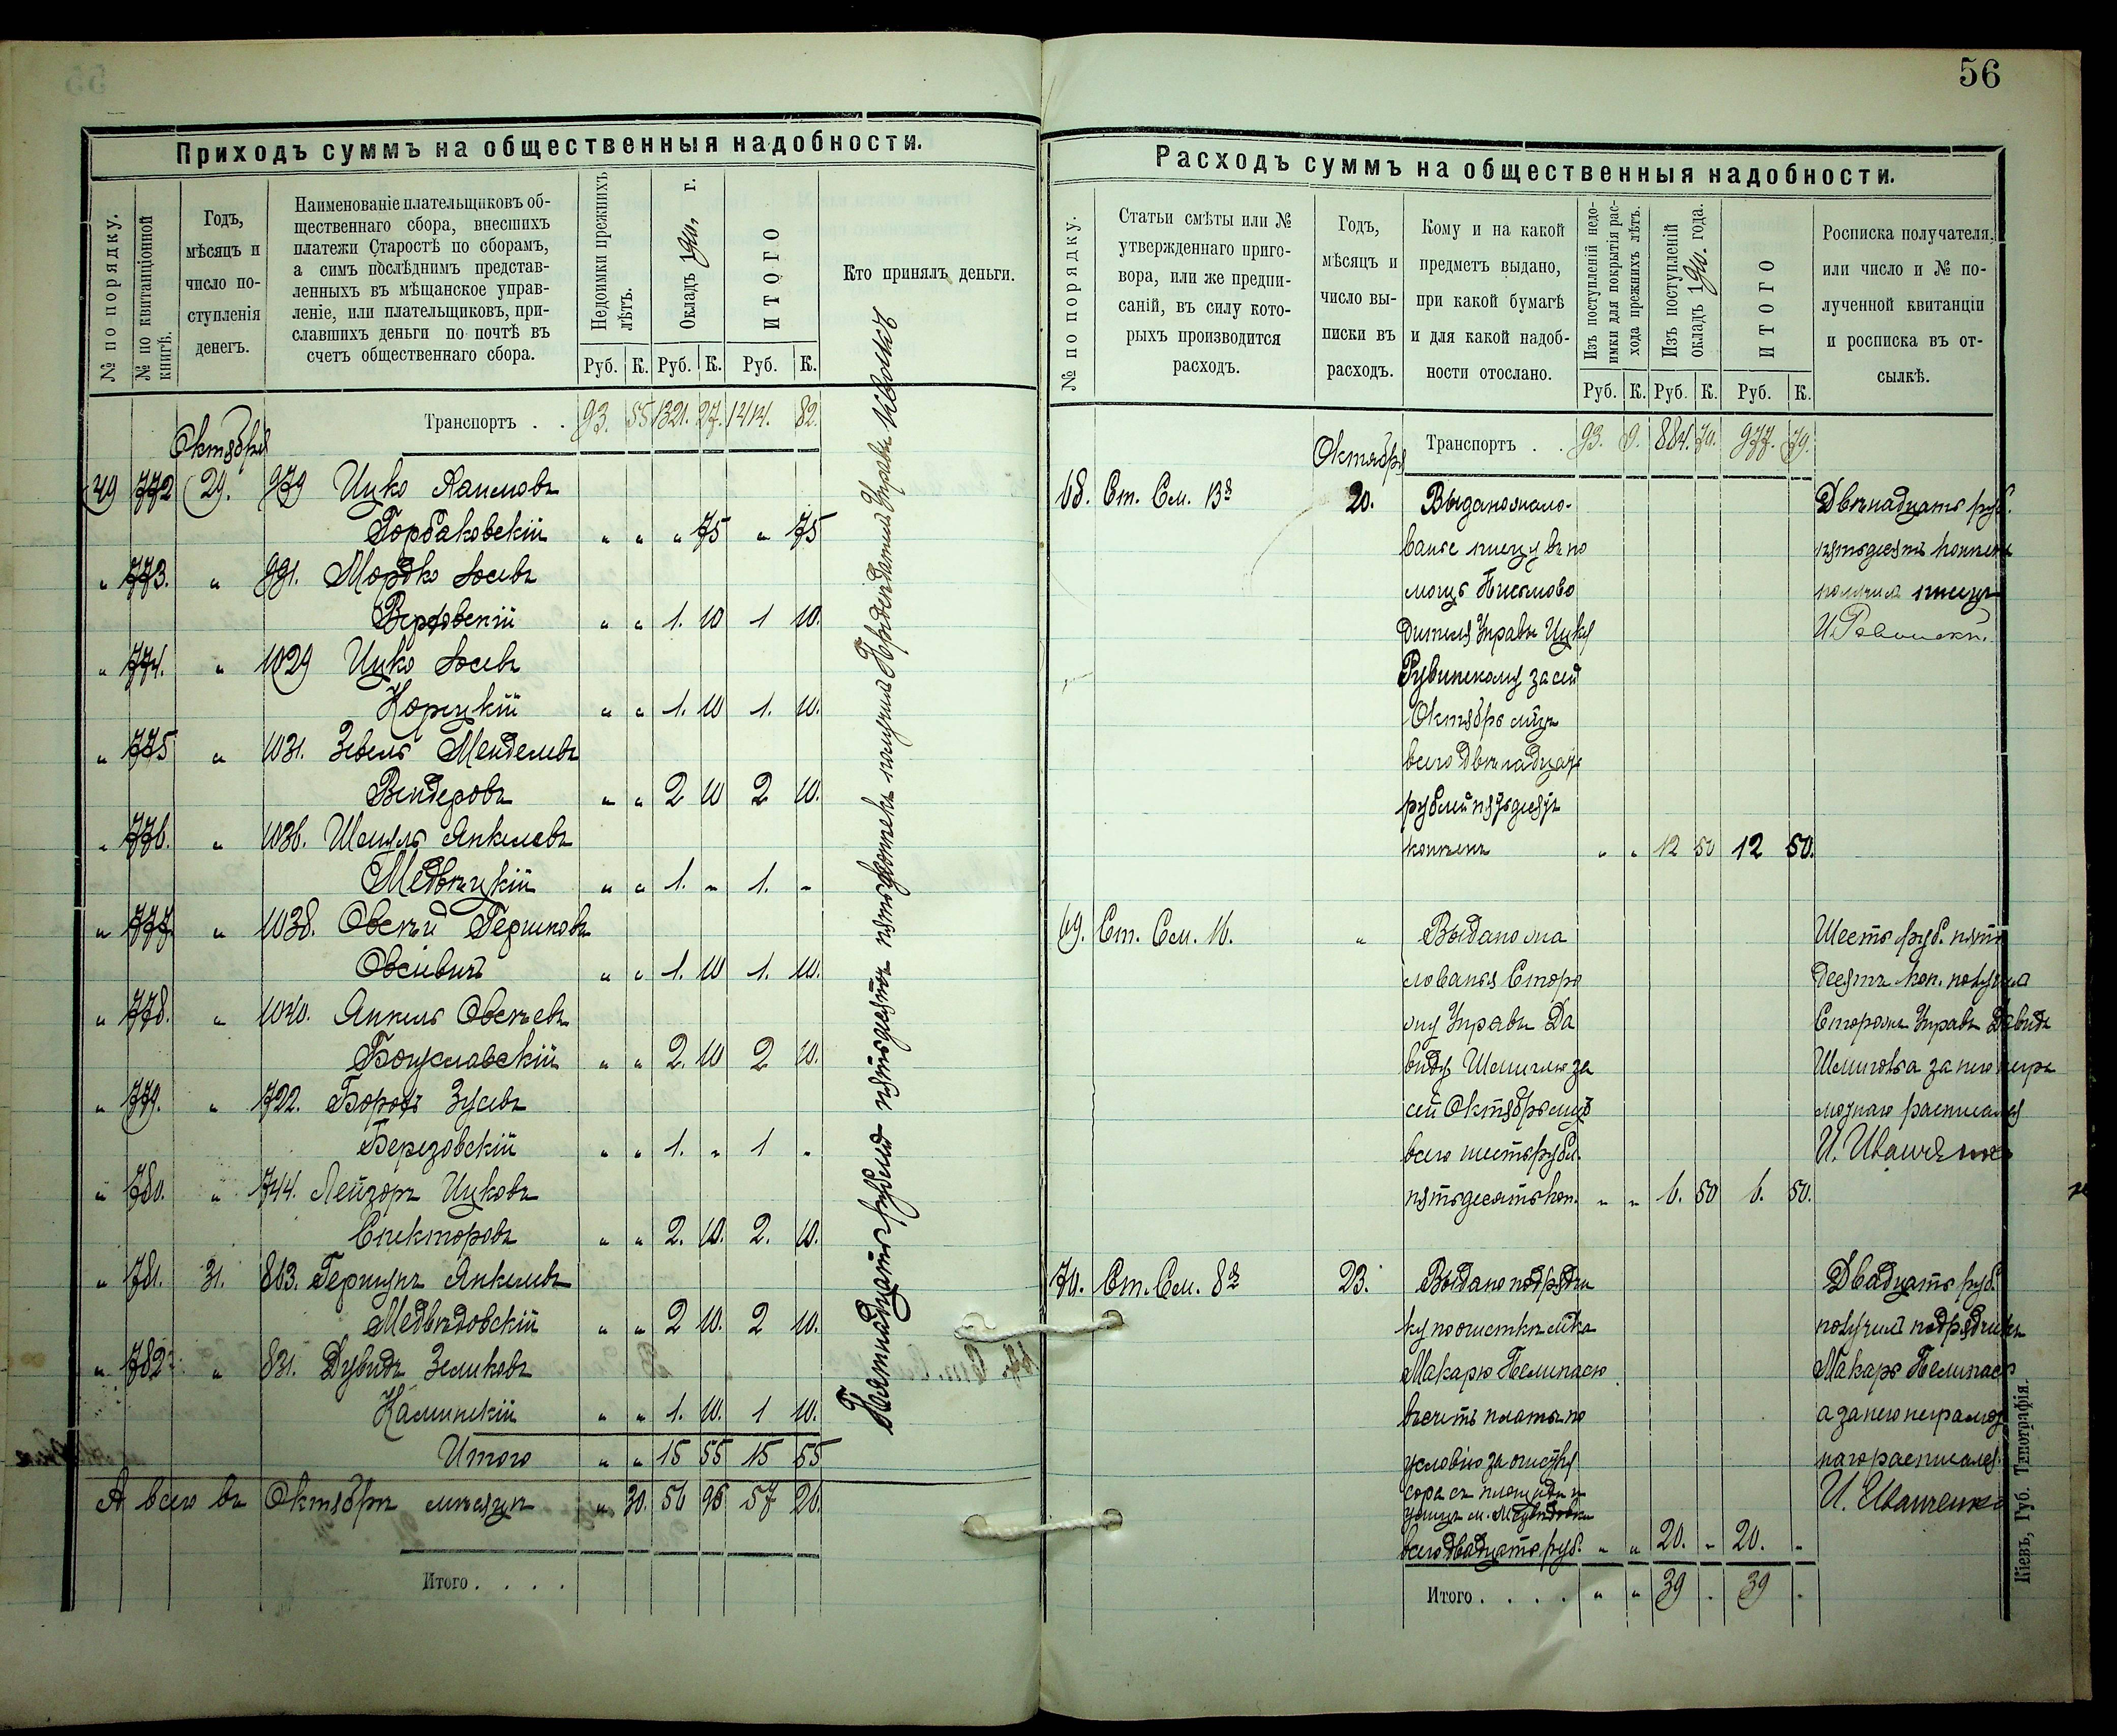 56
Приходъ суммъ на общественныя надобности.
№ по порядку.
№ по квитанціонной книгѣ.
Годъ,
мѣсяцъ и
число по-
ступленія
денегъ.
Наименованіе плательщиковъ об-
щественнаго сбора, внесшихъ
платежи Старостѣ по сборамъ,
а симъ послѣднимъ представ-
ленныхъ въ мѣщанское управ-
леніе, или плательщиковъ, при-
славшихъ деньги по почтѣ въ
счетъ общественнаго сбора.
Недоимки прежнихъ
лѣтъ.
Окладъ г.
ИТОГО
Кто принялъ деньги.
Руб. К. Руб. К. Руб. К.
Транспортъ . . 93. 55 1321. 27. 1414. 82.
Октября
49 772 29. 979 Ицко Хаимовъ
Горбаковскій " " " 75 " 75
" 773. " 991. Мордко Іосевъ
Верховскій " " 1. 10 1 10.
" 774. " 1029 Ицко Іосевъ
Корецкій " " 1. 10 1. 10.
" 775 " 1031. Зевель Менделевъ
Вендеровъ " " 2 10 2 10.
" 776. " 1036. Шмуль Янкелевъ
Медвецкій " " 1. " 1. "
" 777. " 1038. Овсѣй Гершковъ
Овсіевичъ " " 1. 10 1. 10.
" 778. " 1040. Янкель Овсѣевъ
Богуславскій " " 2. 10 2 10.
" 779. " 722. Борохъ Зусевъ
Березовскій " " 1. " 1 "
" 780. " 744. Лейзоръ Ицковъ
Спекторовъ " " 2. 10. 2. 10.
" 781. 31. 813. Гершунъ Янкелевъ
Медвѣдовскій " " 2 10. 2 10.
" 782 " 831. Дувидъ Зеликовъ
Каминскій " " 1. 10. 1 10.
Итого " " 15 55 15 55
А всего въ Октябрѣ мѣсяцѣ " 30. 56 96 57 26.
Итого . . . .
Пятнадцать рублей пятьдесятъ пять копѣекъ получилъ
Расходъ суммъ на общественныя надобности.
№ по порядку.
Статьи смѣты или №
утвержденнаго приго-
вора, или же предпи-
саній, въ силу кото-
рыхъ производится
расходъ.
Годъ,
мѣсяцъ и
число вы-
писки въ
расходъ.
Кому и на какой
предметъ выдано,
при какой бумагѣ
и для какой надоб-
ности отослано.
Изъ поступленій недо-
имки для покрытія рас-
хода прежнихъ лѣтъ.
Изъ поступленій
окладъ года.
ИТОГО
Росписка получателя,
или число и № по-
лученной квитанціи
и росписка въ от-
сылкѣ.
Руб. К. Руб. К. Руб. К.
Октября Транспортъ . . 93. 9. 884. 70. 977. 79.
68. Ст. См. 13 20. Выдано жало- Двѣнадцать руб.
ванье писцу въ по пятьдесятъ копѣекъ
мощь Письмово получилъ писецъ
дителя Управы Ицку
Рувинскому за сей
Октябрь мѣсяцъ
всего двѣнадцать
рублей пятьдесятъ
копѣекъ " " 12 50 12 50.
69. Ст. См. 16. " Выдано жа Шесть руб. пять
лованья Сторо десятъ коп. получилъ
жу Управы Да Сторожъ Управы Давидъ
виду за
сей Октябрь мѣсяцъ мотнаго расписался
всего шесть рубл. И. Иващенко
пятьдесятъ коп. " " 6. 50 6. 50.
70. Ст. См. 8 23. Выдано подрядчи Двадцать руб.
ку по очисткѣ мѣста получилъ подрядчикъ
Макарю Пелипасю Макаръ Пелипась
въ счетъ платы по а за него неграмот
условію за очистку наго расписался
сора съ площади и И. Иващенко
улицъ м. Медвѣдовки
всего двадцать руб. " " 20. " 20. "
Итого . . . . " " 39 . 39 .
Кіевъ, Губ. Типографія.